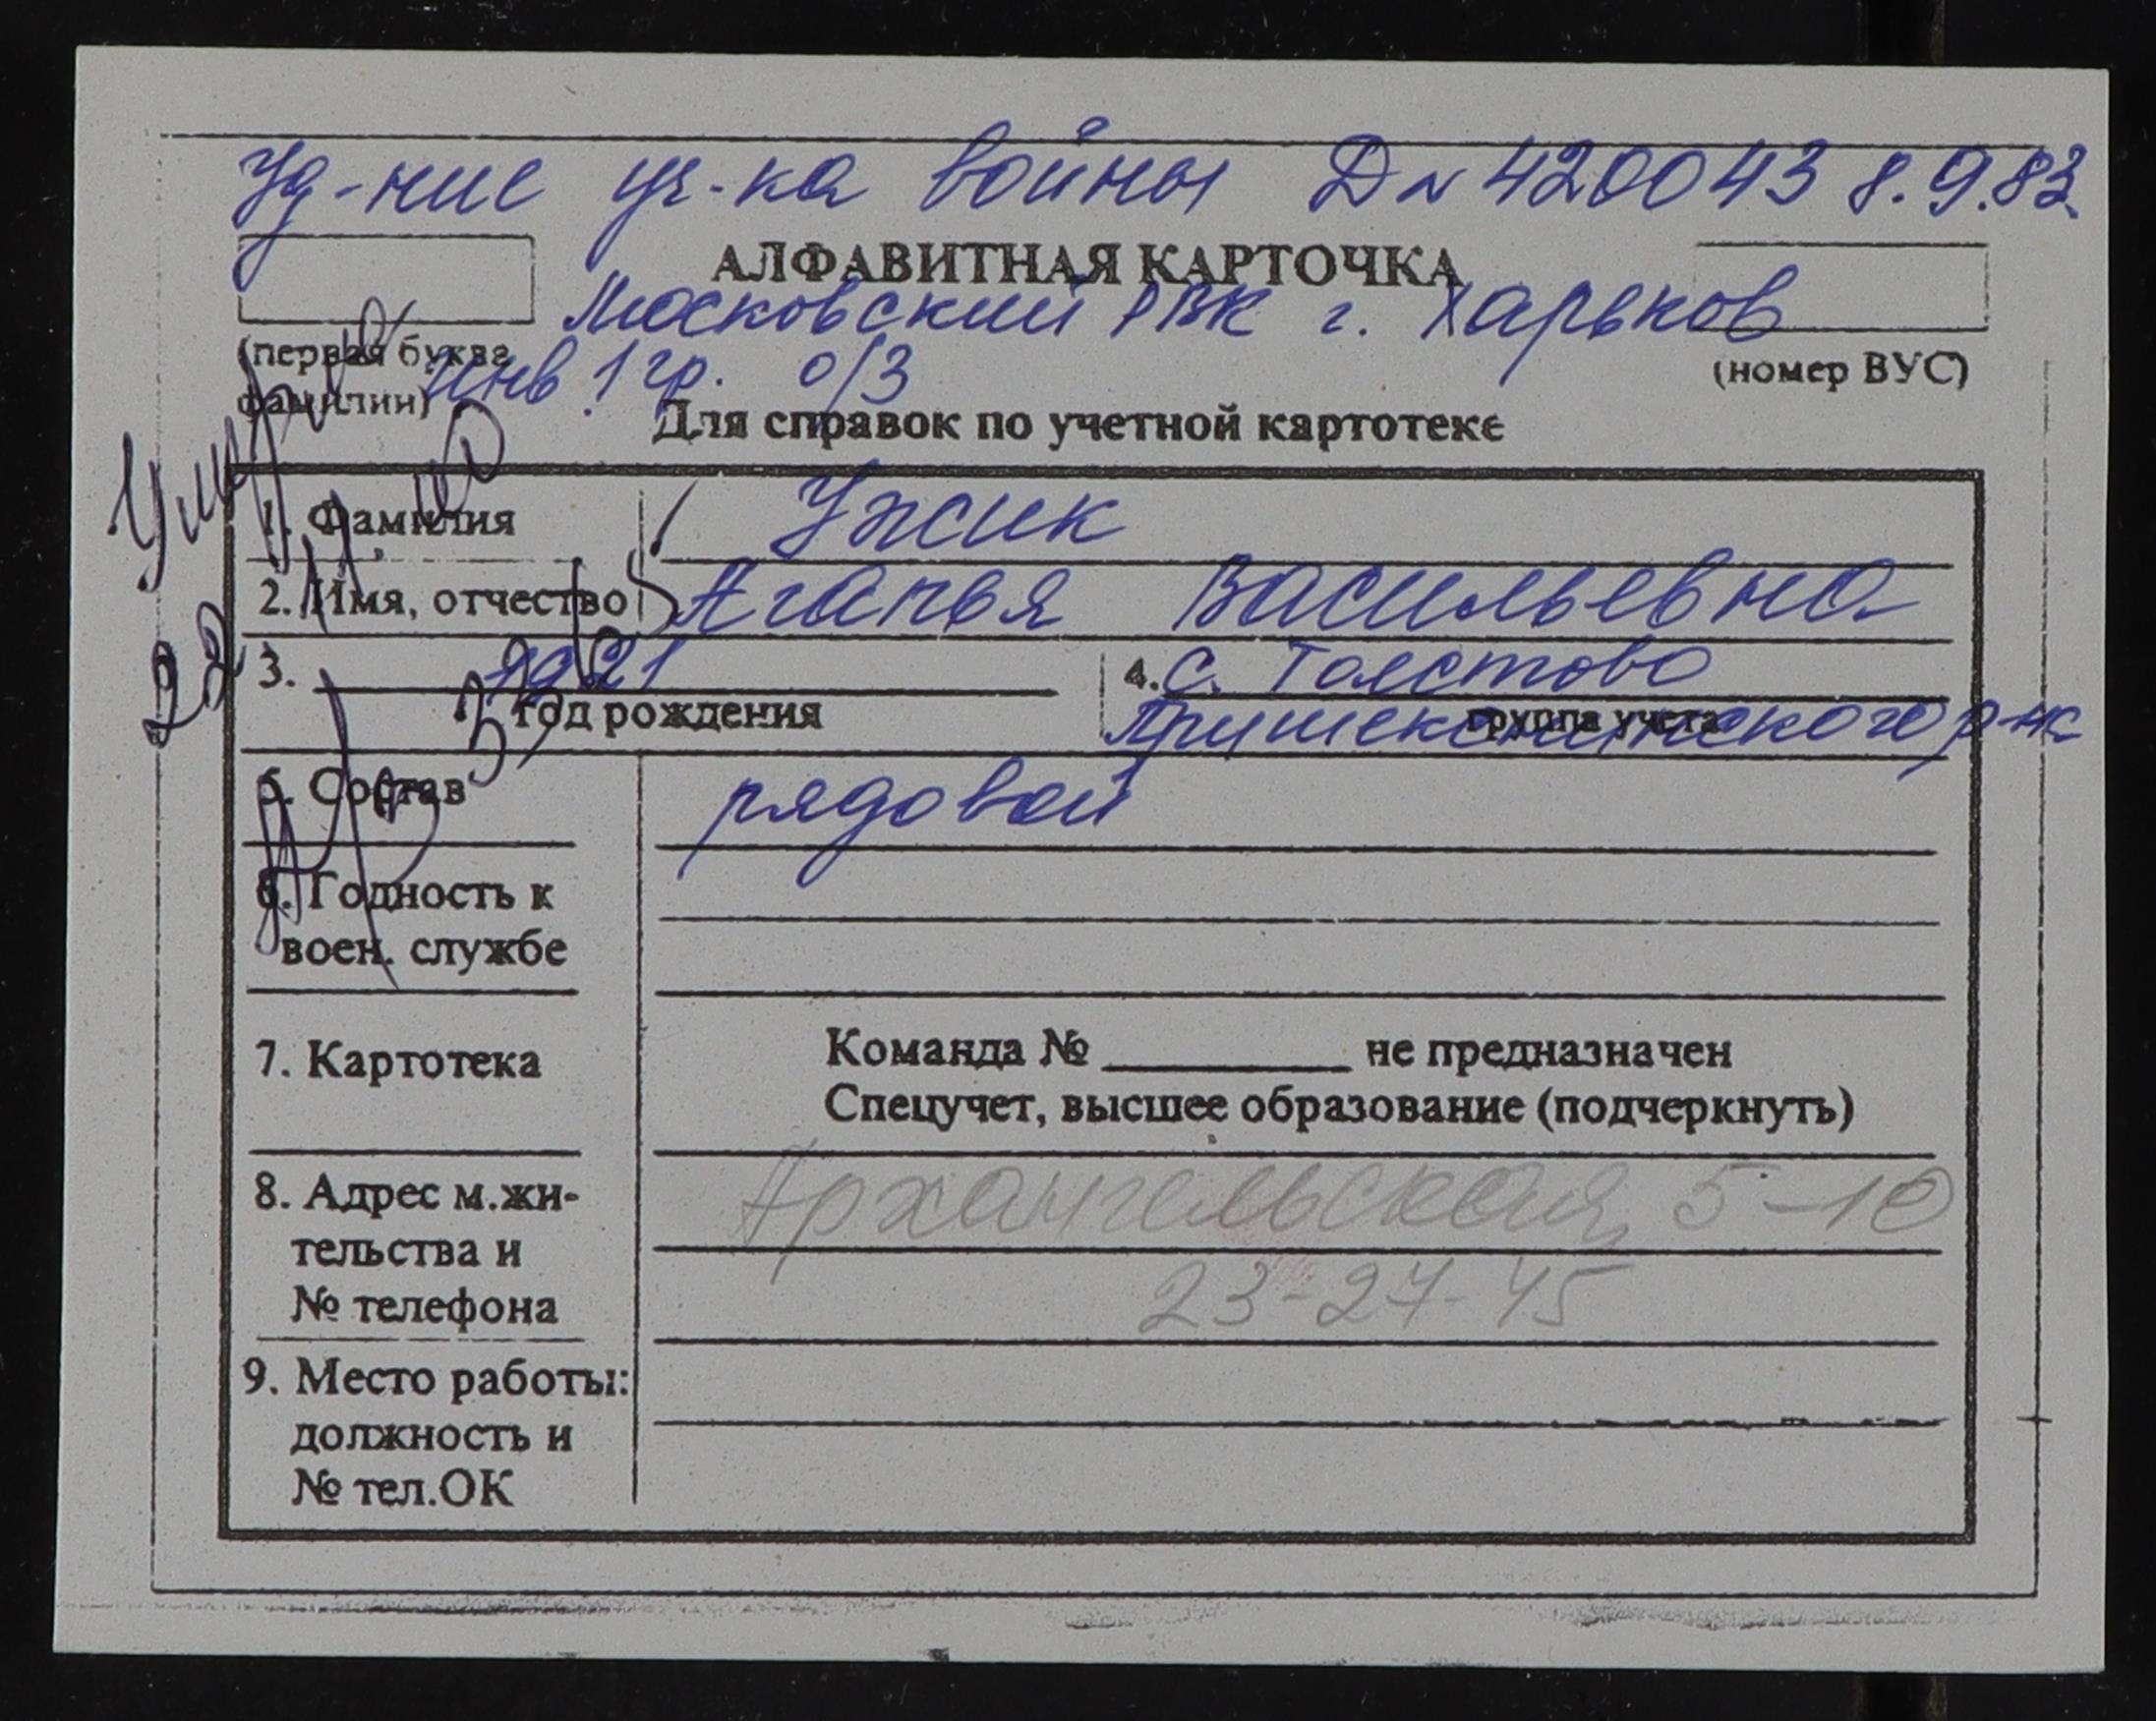 Уд-ние уч-ка войны Д № 420043 8.9.83.
АЛФАВИТНАЯ КАРТОЧКА
Московский РВК г. Харьков
(первая буква
фамилии)
инв 1 гр. о/з
(номер ВУС)
Для справок по учетной картотеке
1. Фамилия Ужсик
2. Имя, отчество Агапья Васильевна
3. 1921 4. с. Толстово
год рождения группа учета
р-на
5. Состав рядовой
6. Годность к
воен. службе
7. Картотека Команда № не предназначен
Спецучет, высшее образование (подчеркнуть)
8. Адрес м.жи- Архангельская, 5-10
тельства и
№ телефона 23-27-45
9. Место работы:
должность и
№ тел.ОК